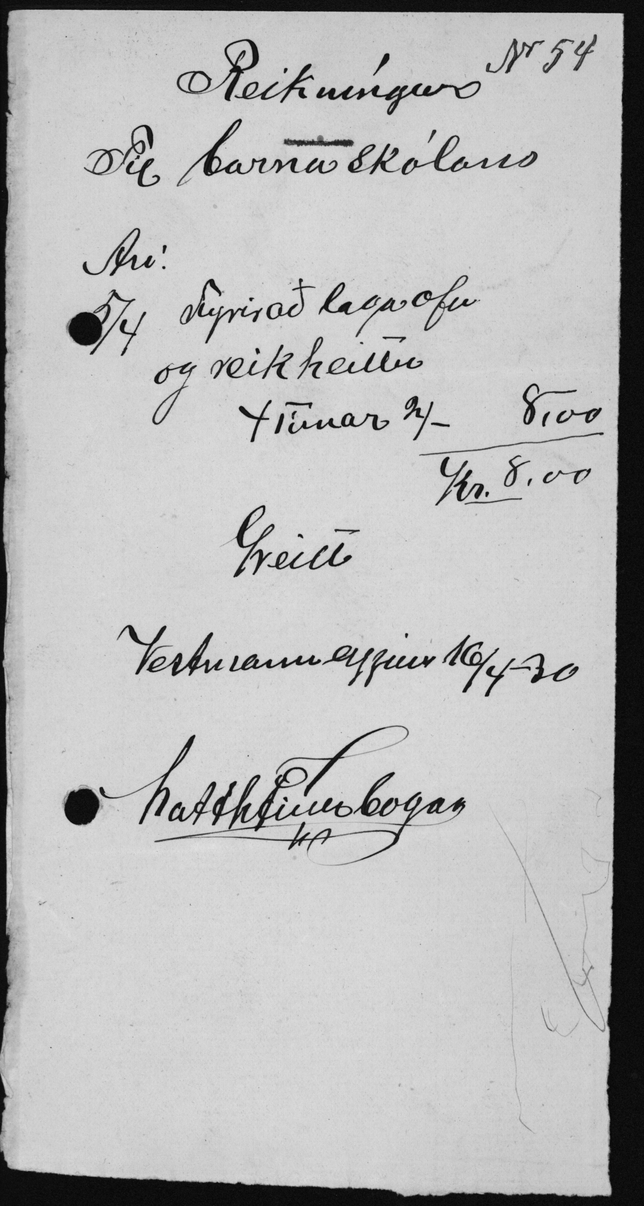 Nr 54
Reikningur
Til barnaskólans
5/4 Fyrir að laga ofn
og reikheittu
4 tímar 2/- 8,00
Kr. 8,00
Greitt
Vestmannaeyjum 16/4-30
Matth Finnbogas